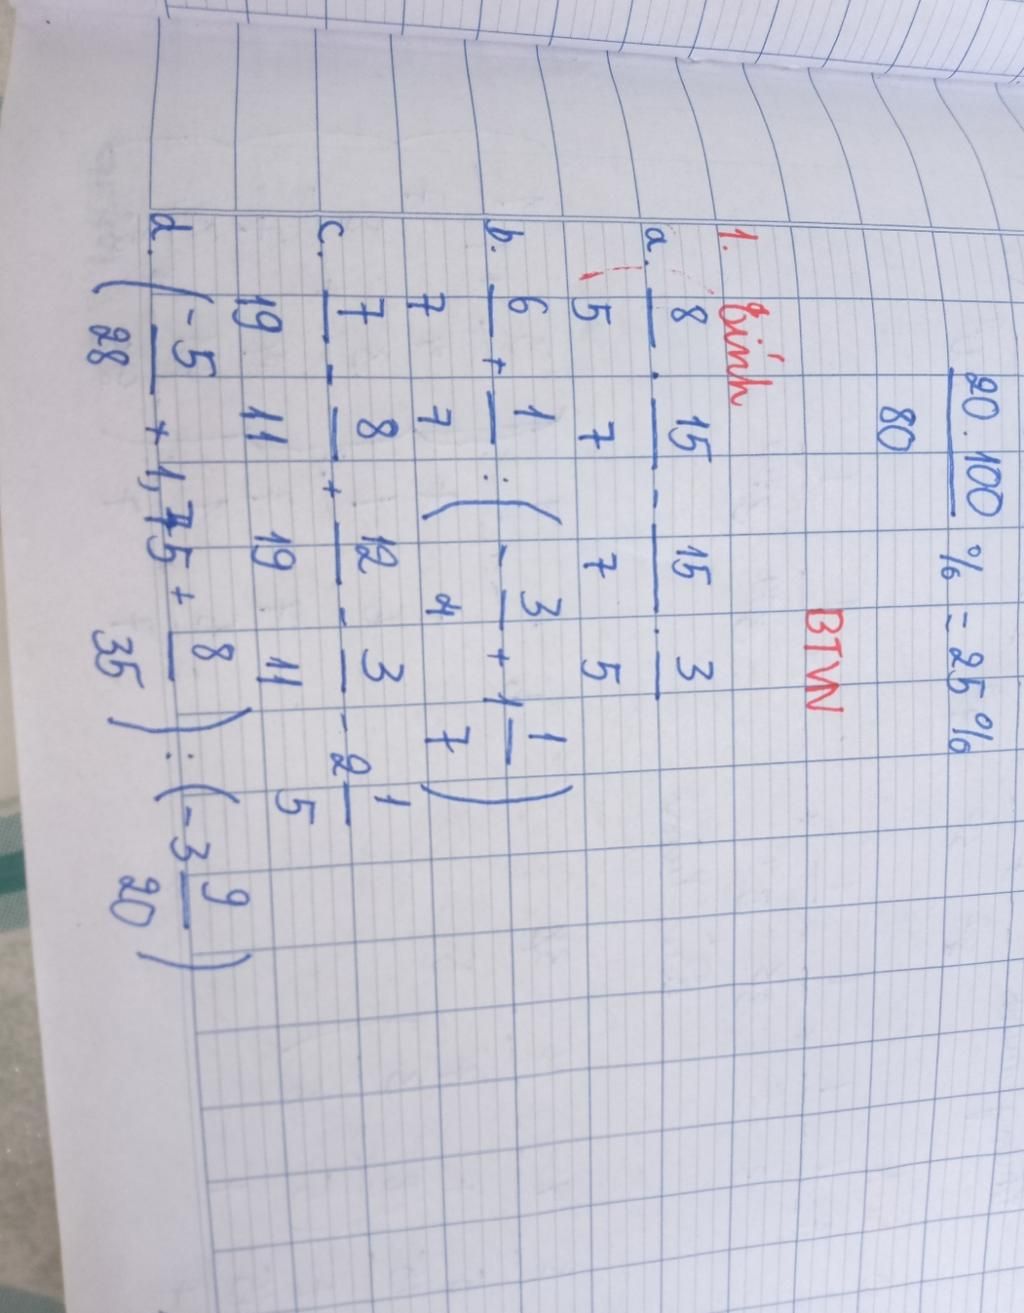 20.100/80 % = 25%
BTVN
1. Tính
a. 8/5 . 15/7 - 15/7 . 3/5
b. 6/7 + 1/7 : ( - 3/4 + 1 1/7 )
c. 7/19 - 8/11 + 12/19 - 3/11 - 2 1/5
d. ( -5/28 + 1,75 + 8/35 ) : ( -3 9/20 )